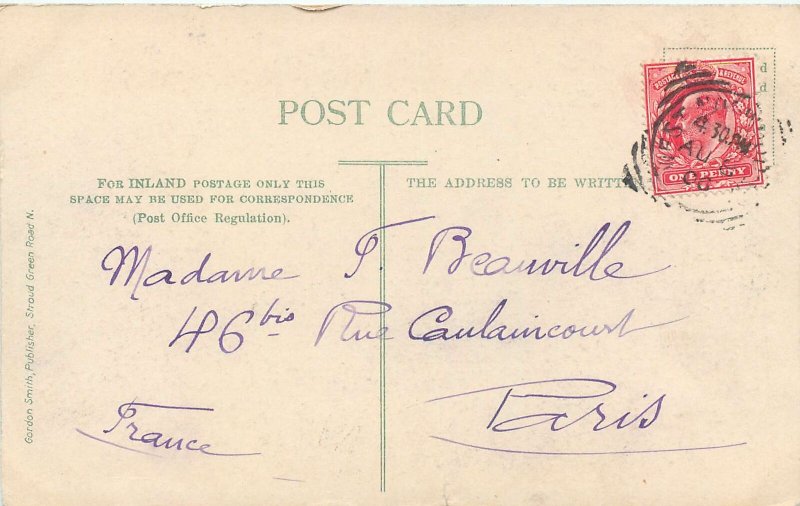 POST CARD
FOR INLAND POSTAGE ONLY THIS
SPACE MAY BE USED FOR CORRESPONDENCE
(Post Office Regulation).
THE ADDRESS TO BE
POSTAGE & REVENUE
ONE PENNY
4.30 PM
AU
Madame F. Beauville
46 bis Rue Caulaincourt
Paris
France
Gordon Smith, Publisher, Stroud Green Road N.